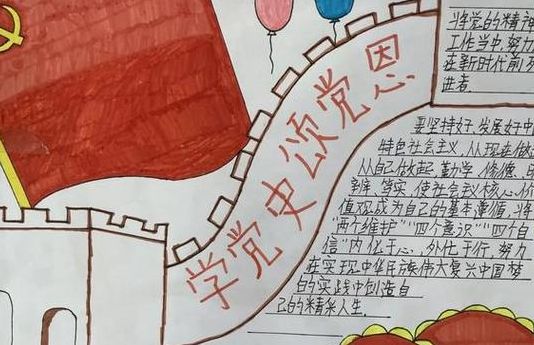 学党史颂党恩
将党的精神
工作当中,努力
在新时代前列
进者.
要坚持好、发展好中
特色社会主义,从现在做
从自己做起,勤学、修德、明
辨、笃实,使社会主义核心价
值观成为自己的基本遵循,将
"两个维护""四个意识""四个自
信"内化于心、外化于行,努力
在实现中华民族伟大复兴中国梦
的实践中创造自
己的精采人生.